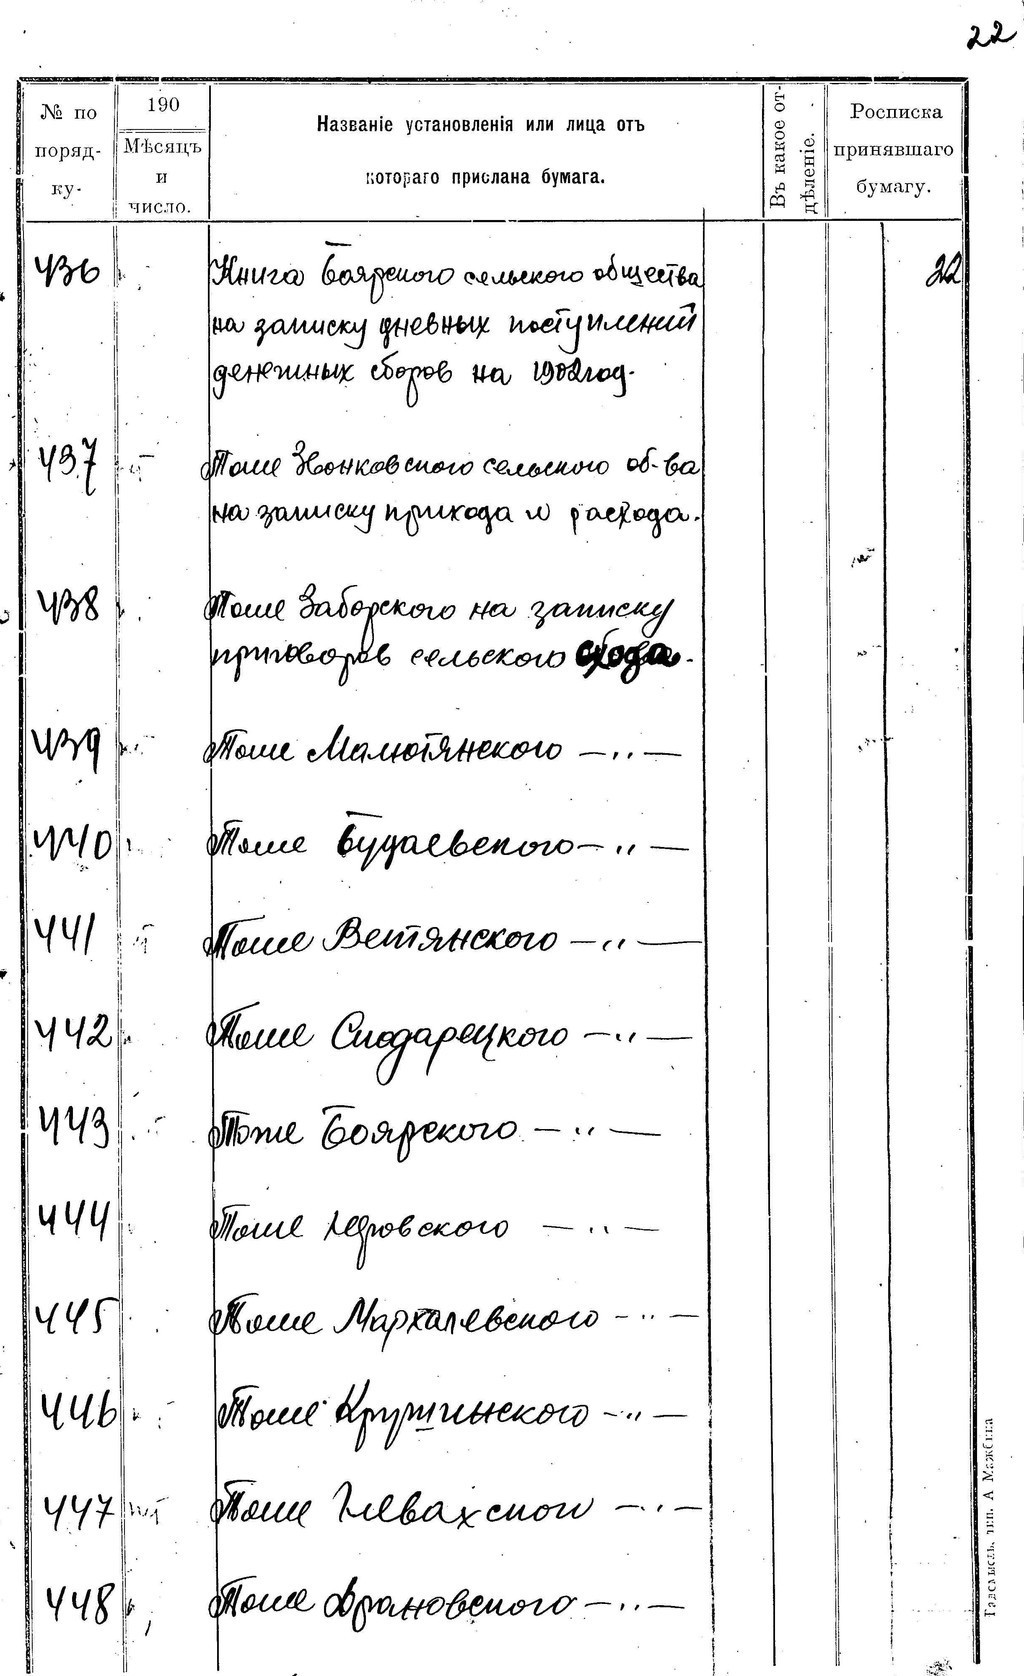 22
№ по поряд-ку-
190
Мѣсяцъ и число.
Названіе установленія или лица отъ
котораго прислана бумага.
Въ какое от-дѣленіе.
Росписка принявшаго бумагу.
436 Книга Боярского сельского общества 22
на записку дневных поступлений
денежных сборов на 1902 год.
437 Тоже Звонковского сельского об-ва
на записку прихода и расхода.
438 Тоже Заборского на записку
приговоров сельского схода.
439 Тоже Малютянского — „ —
440 Тоже Будаевского — „ —
441 Тоже Ветянского — „ —
442 Тоже Сподарецкого — „ —
443 Тоже Боярского — „ —
444 Тоже — „ —
445 Тоже Мархалевского — „ —
446 Тоже Кружгинского — „ —
447 Тоже — „ —
448 Тоже — „ —
тип. А